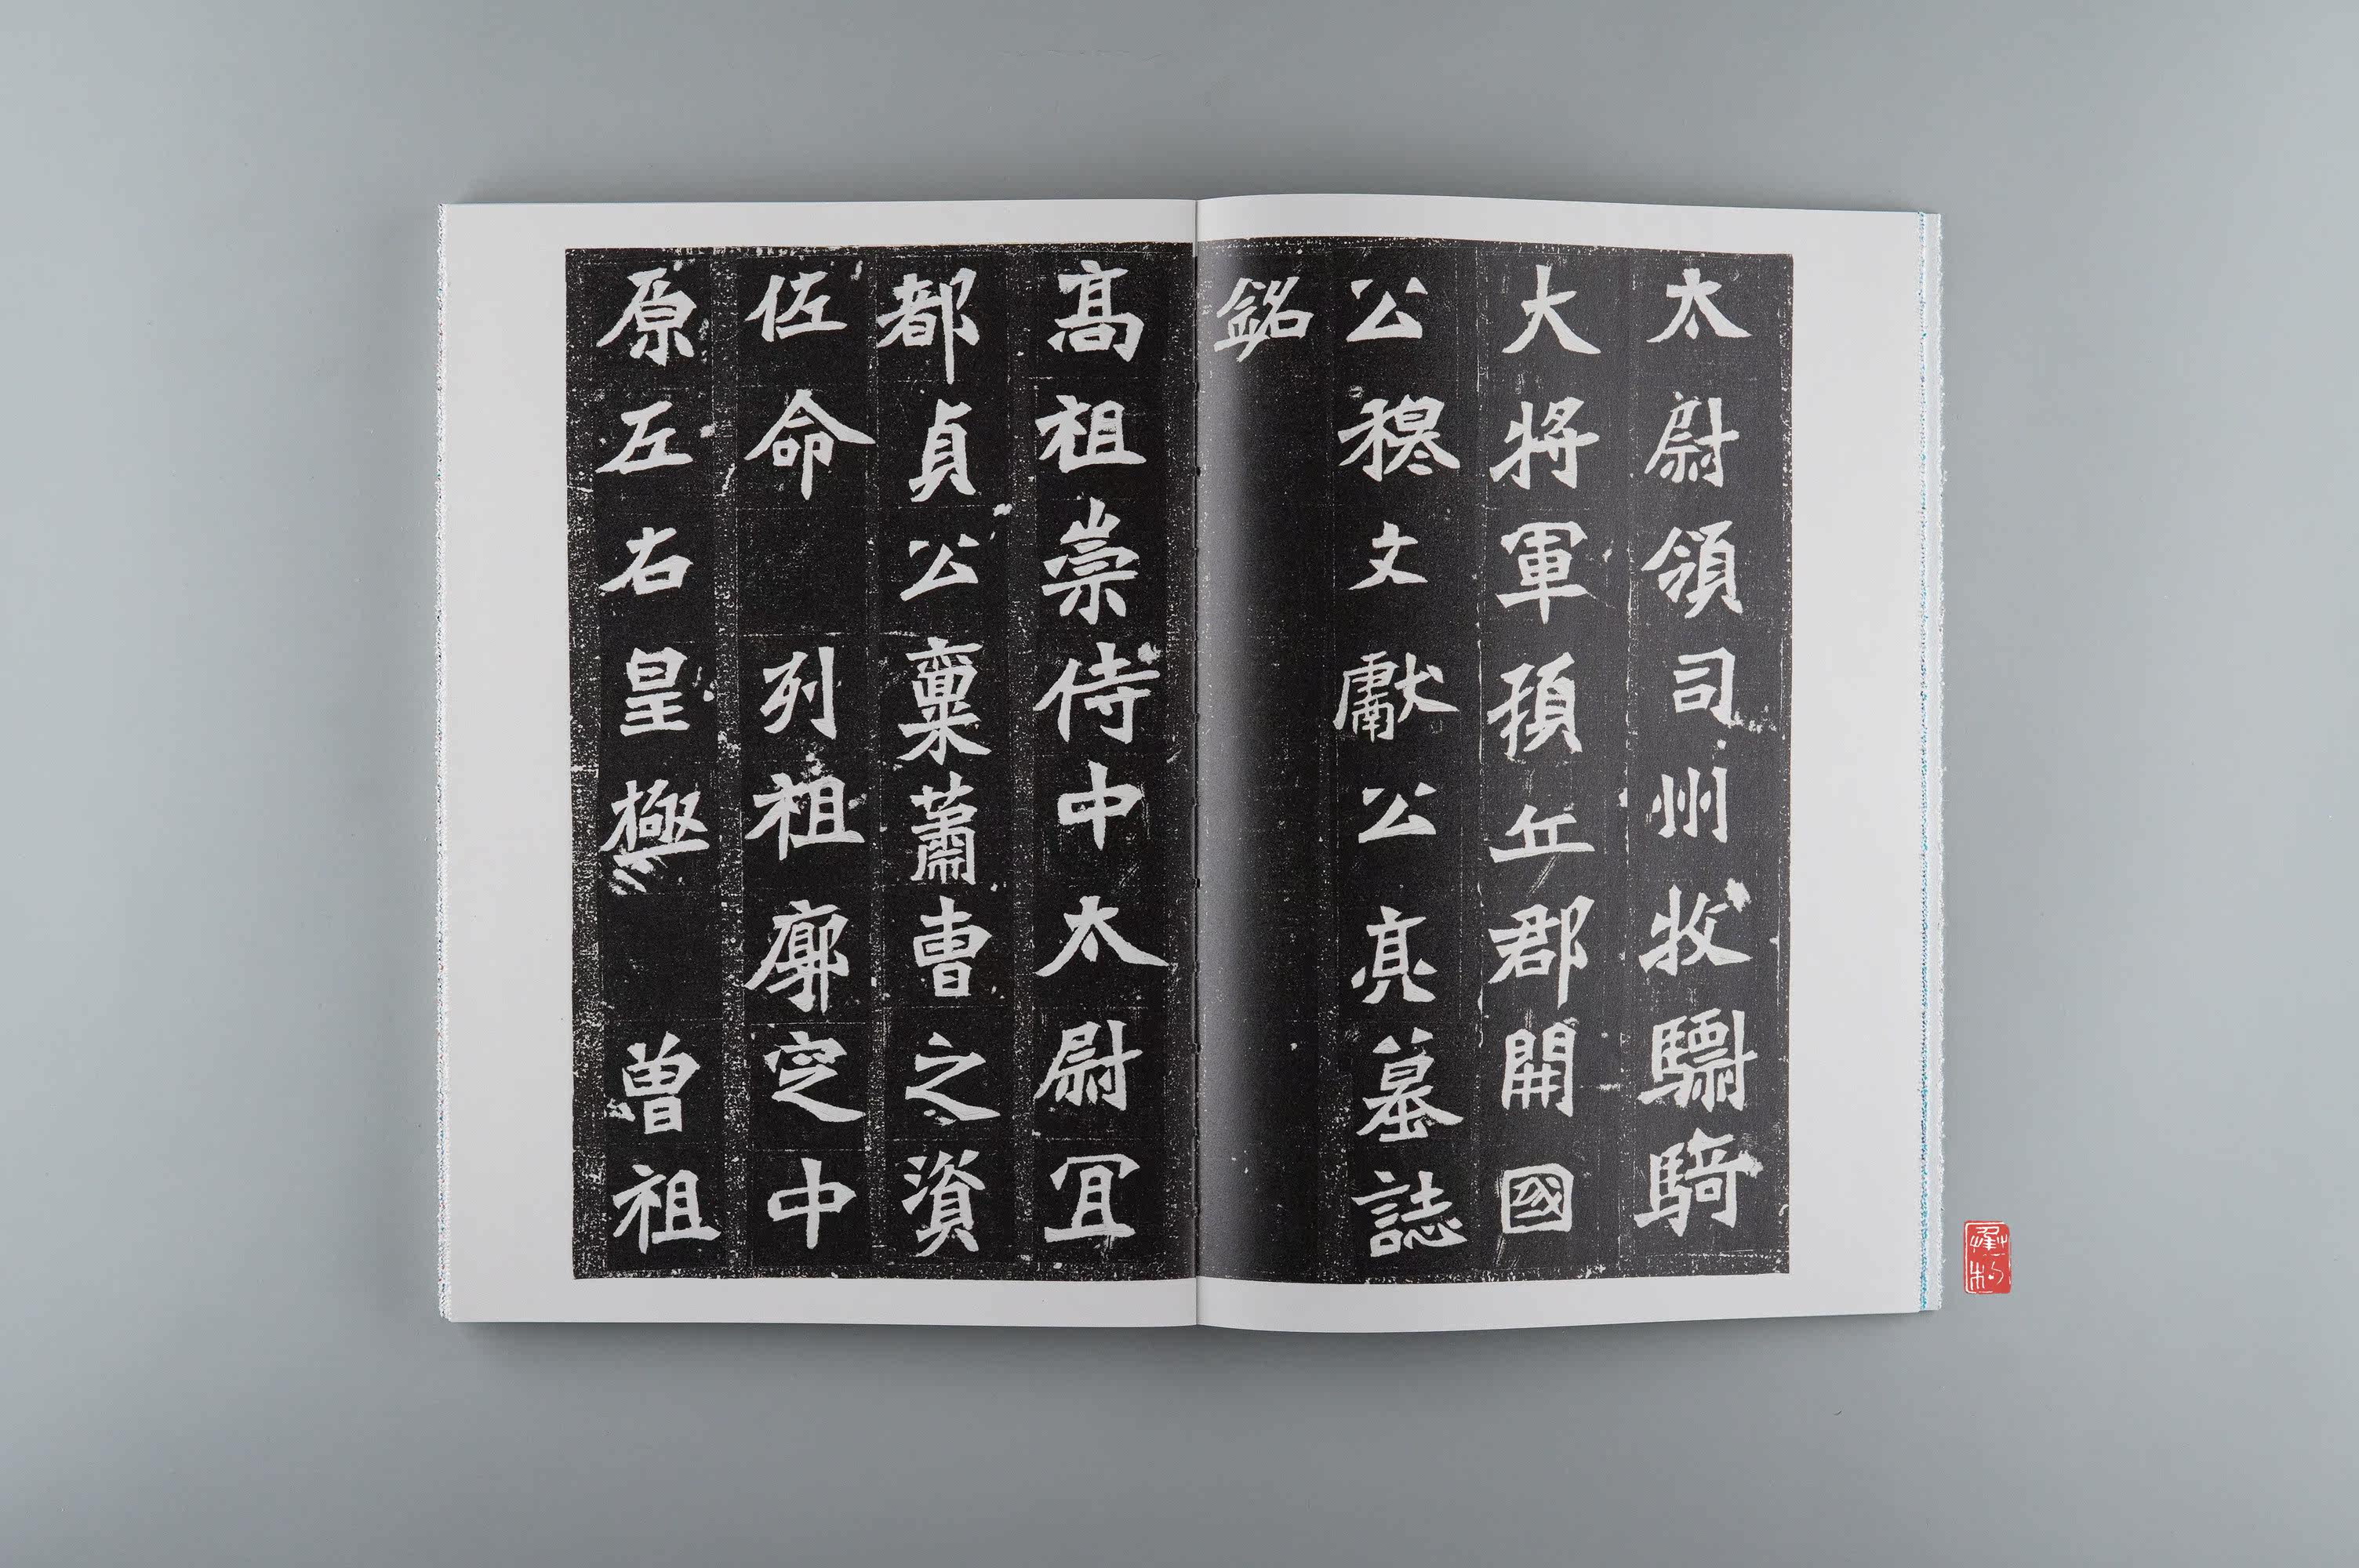 太尉領司州牧驃騎
大將軍頓丘郡開國
公穆文獻公亮墓誌
銘
高祖崇侍中太尉冝
都貞公稟蕭曹之資
佐命 列祖廓定中
原左右皇極 曾祖